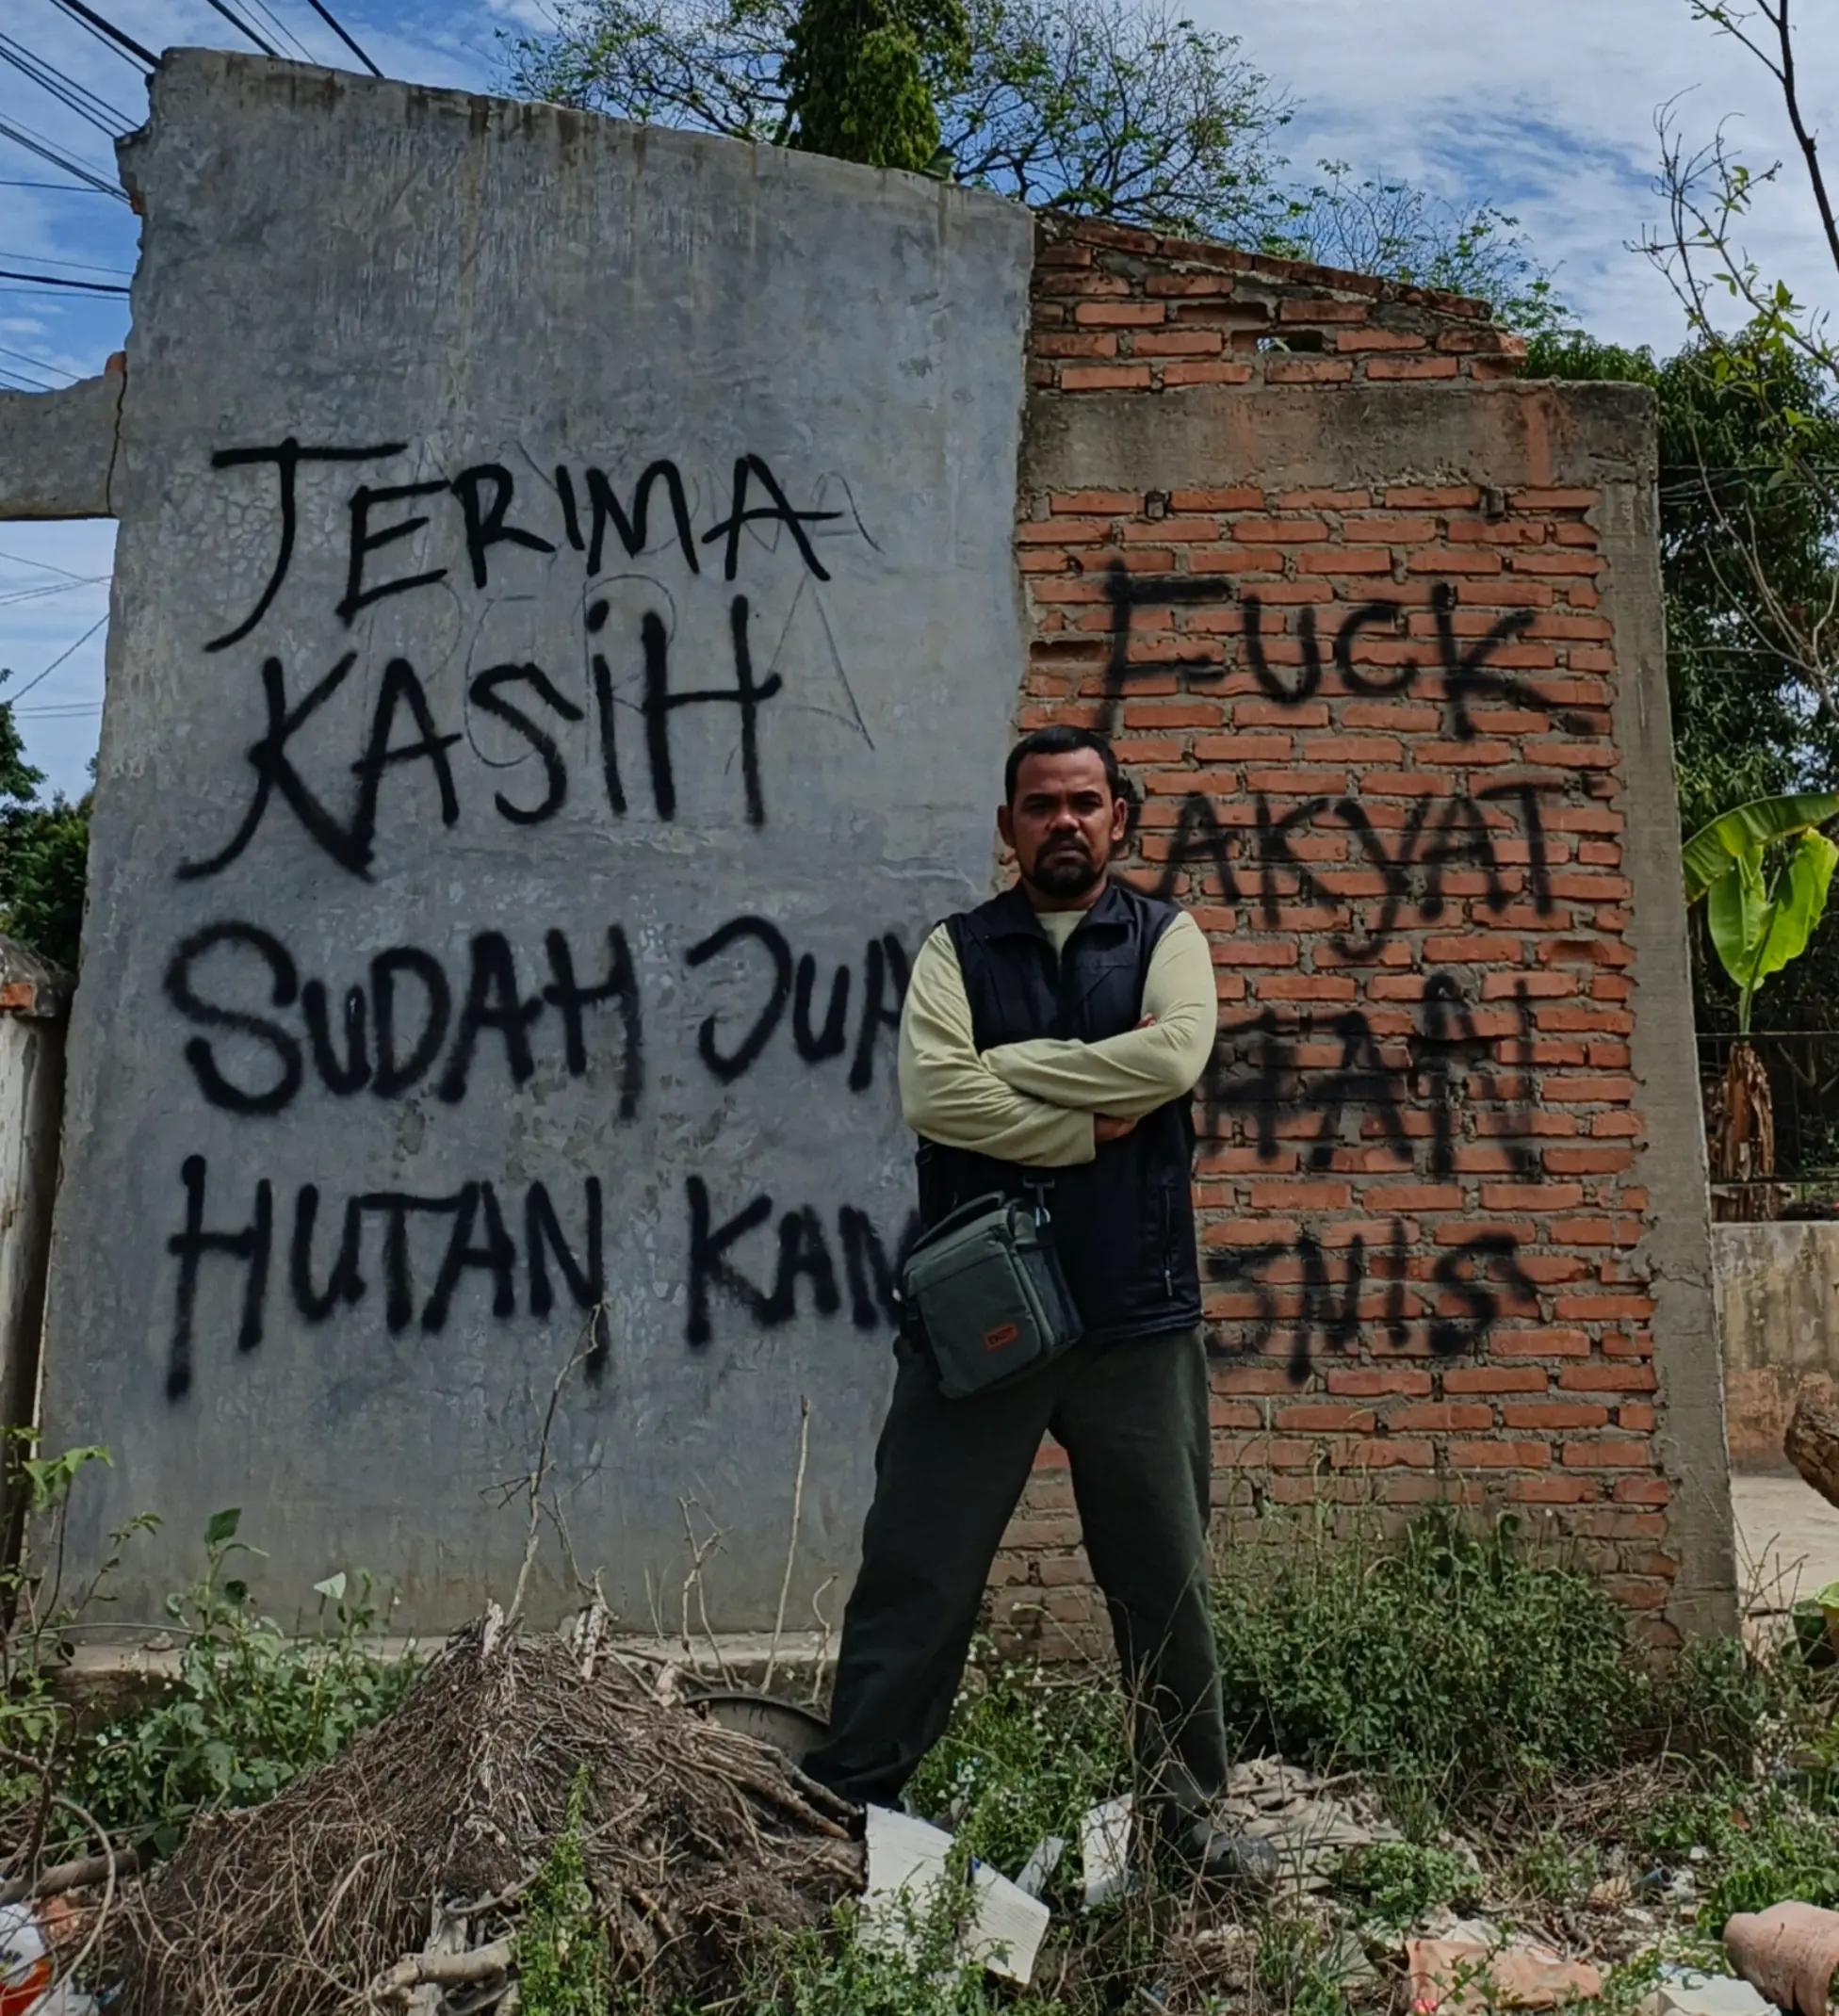 TERIMA
KASiH
SUDAH JUA
HUTAN KAM
FUCK
RAKYAT
BISNIS